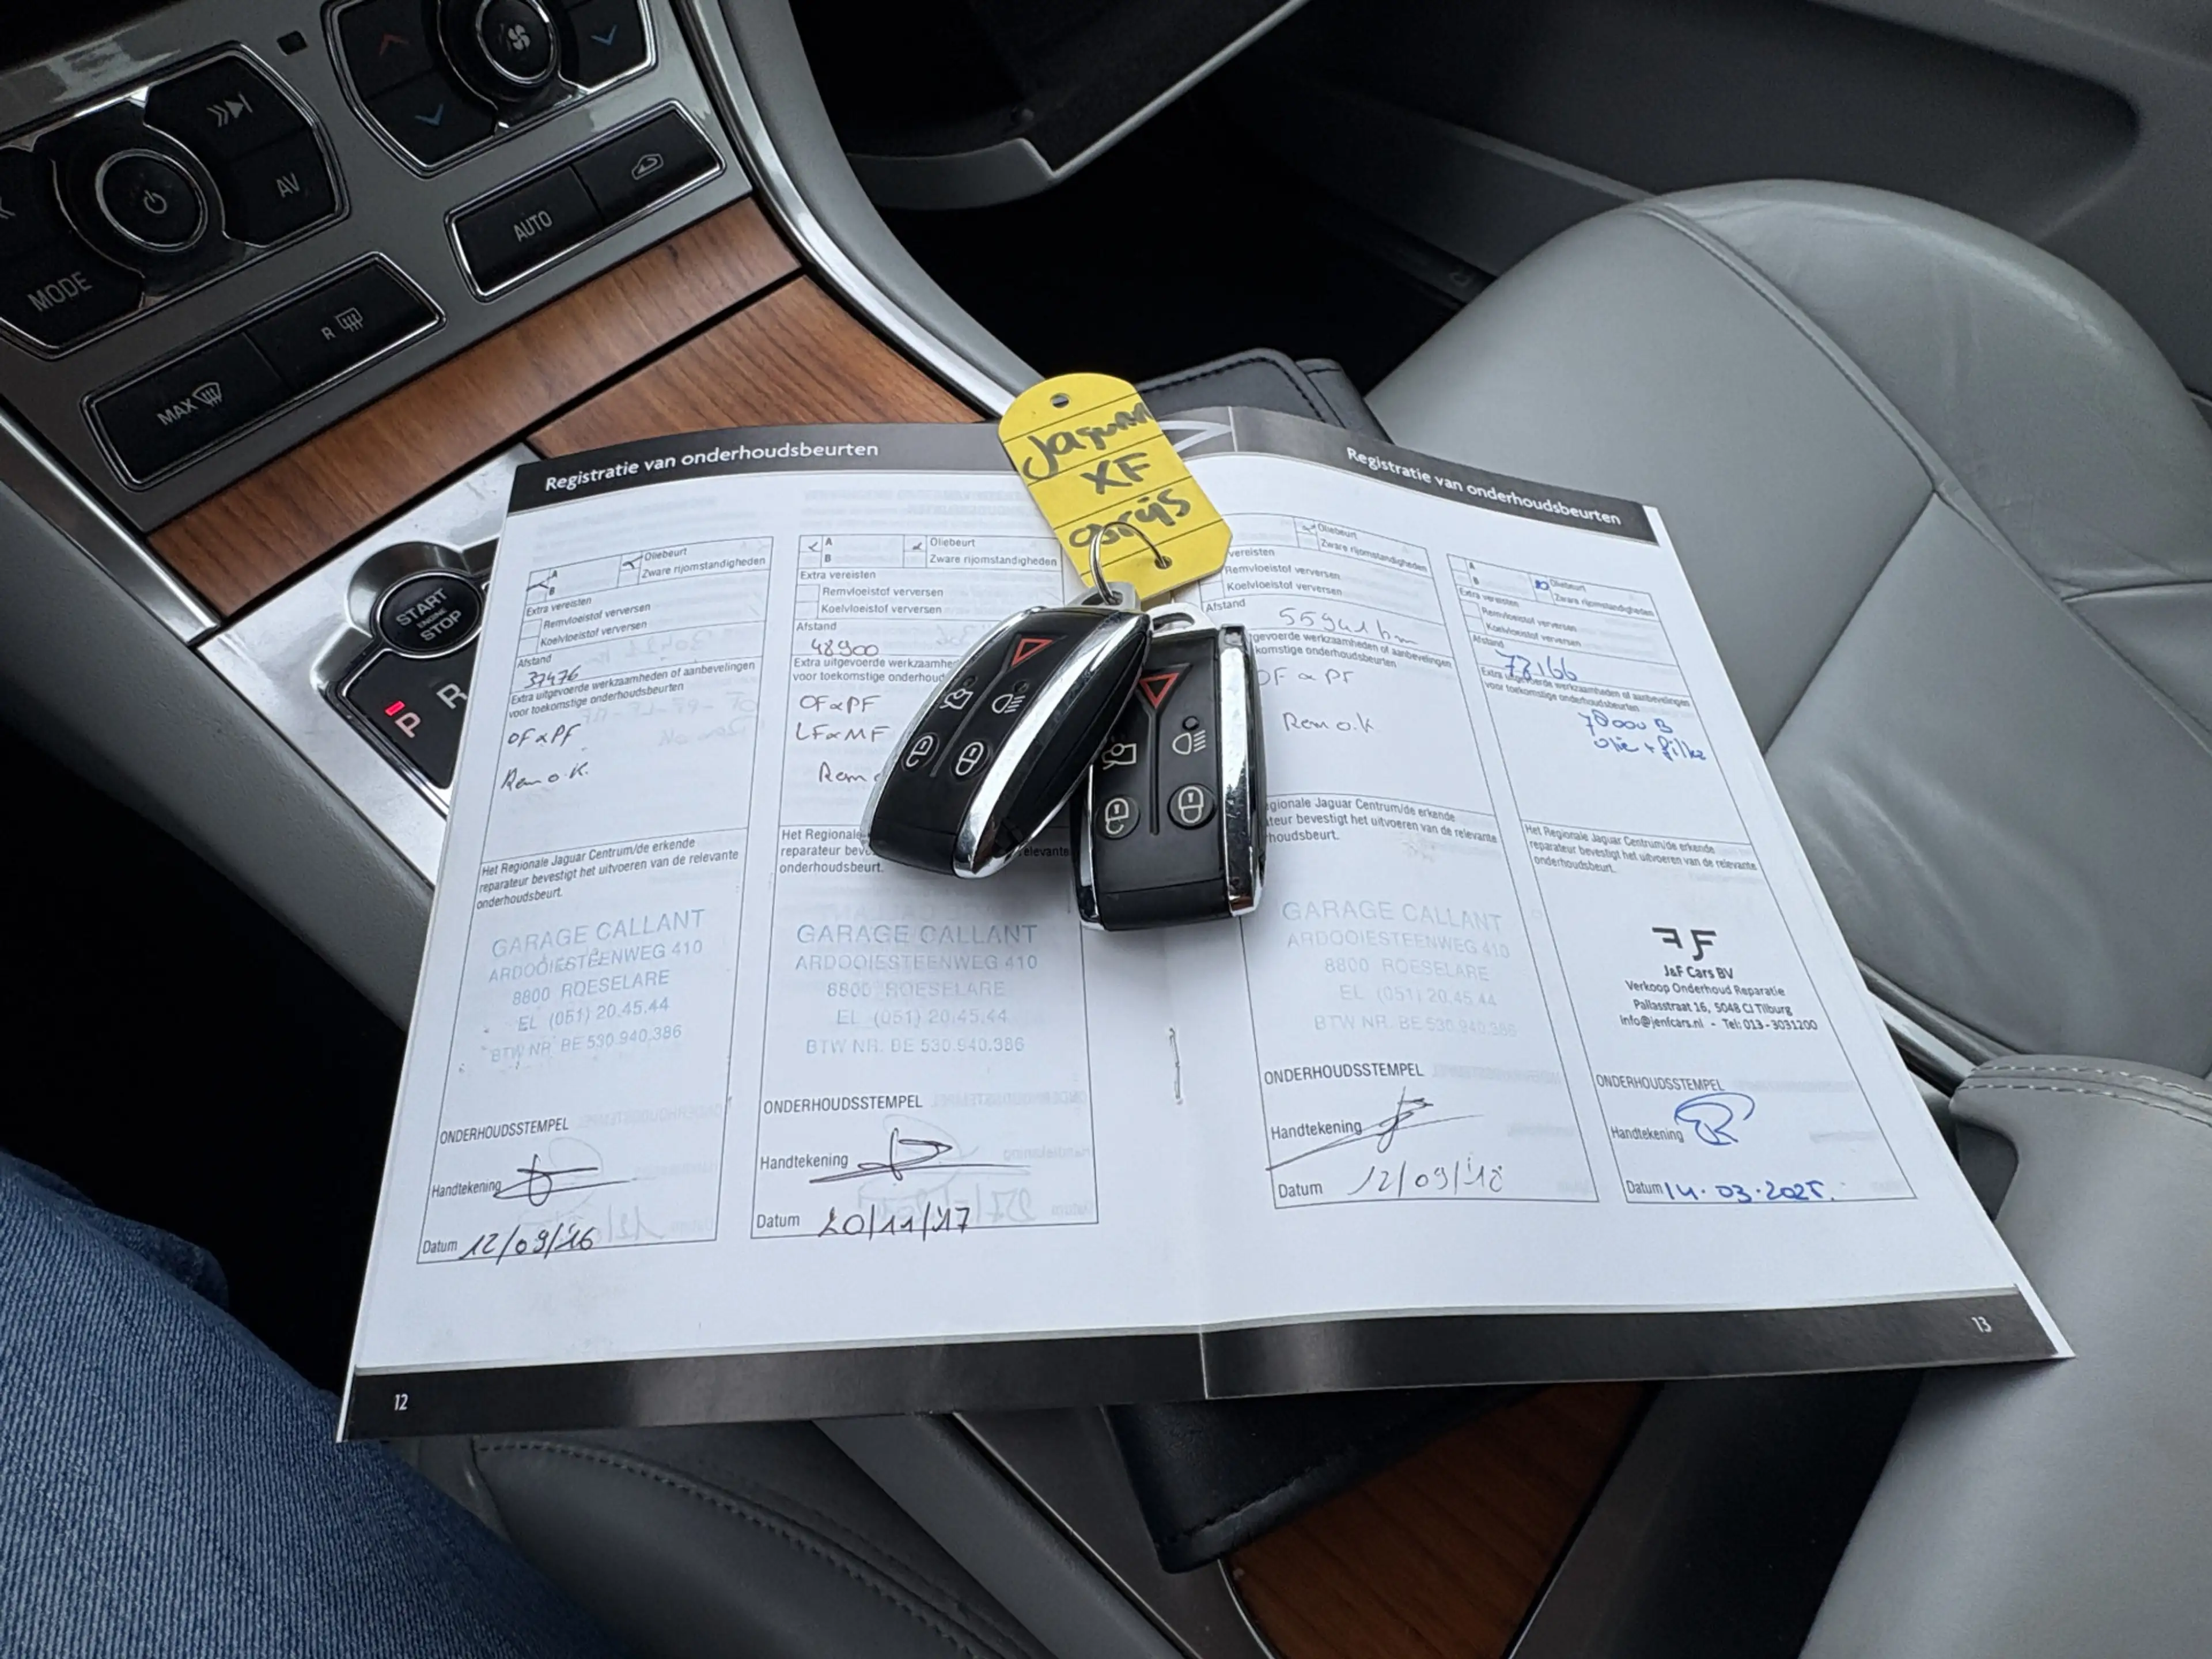 AV
MODE
AUTO
R
MAX
START
ENGINE
STOP
P
R
Jaguar
XF
Registratie van onderhoudsbeurten
A
B
Oliebeurt
Zware rijomstandigheden
Extra vereisten
Remvloeistof verversen
Koelvloeistof verversen
Afstand
37476
Extra uitgevoerde werkzaamheden of aanbevelingen
voor toekomstige onderhoudsbeurten
OF & PF
Rem o.K.
Het Regionale Jaguar Centrum/de erkende
reparateur bevestigt het uitvoeren van de relevante
onderhoudsbeurt.
GARAGE CALLANT
ARDOOIESTEENWEG 410
8800 ROESELARE
EL (051) 20.45.44
BTW NR. BE 530.940.386
ONDERHOUDSSTEMPEL
Handtekening
Datum 12/09/'16
A
B
Oliebeurt
Zware rijomstandigheden
Extra vereisten
Remvloeistof verversen
Koelvloeistof verversen
Afstand
48900
Extra uitgevoerde werkzaamhe
voor toekomstige onderhoud
OF & PF
LF & MF
Rem
Het Regionale
reparateur beve relevante
onderhoudsbeurt.
GARAGE CALLANT
ARDOOIESTEENWEG 410
8800 ROESELARE
EL (051) 20.45.44
BTW NR. BE 530.940.386
ONDERHOUDSSTEMPEL
Handtekening
Datum 20/11/'17
12
Registratie van onderhoudsbeurten
Oliebeurt
Zware rijomstandigheden
vereisten
Remvloeistof verversen
Koelvloeistof verversen
Afstand
55941 km
gevoerde werkzaamheden of aanbevelingen
komstige onderhoudsbeurten
OF & PF
Rem o.K
egionale Jaguar Centrum/de erkende
teur bevestigt het uitvoeren van de relevante
houdsbeurt.
GARAGE CALLANT
ARDOOIESTEENWEG 410
8800 ROESELARE
EL (051) 20.45.44
BTW NR. BE 530.940.386
ONDERHOUDSSTEMPEL
Handtekening
Datum 12/09/'18
A
B
Oliebeurt
Zware rijomstandigheden
Extra vereisten
Remvloeistof verversen
Koelvloeistof verversen
Afstand
78166
Extra uitgevoerde werkzaamheden of aanbevelingen
voor toekomstige onderhoudsbeurten
olie + filter
Het Regionale Jaguar Centrum/de erkende
reparateur bevestigt het uitvoeren van de relevante
onderhoudsbeurt.
J&F Cars BV
Verkoop Onderhoud Reparatie
Pallasstraat 16, 5048 CJ Tilburg
info@jenfcars.nl - Tel: 013-3031200
ONDERHOUDSSTEMPEL
Handtekening
Datum 14.03.2025.
13